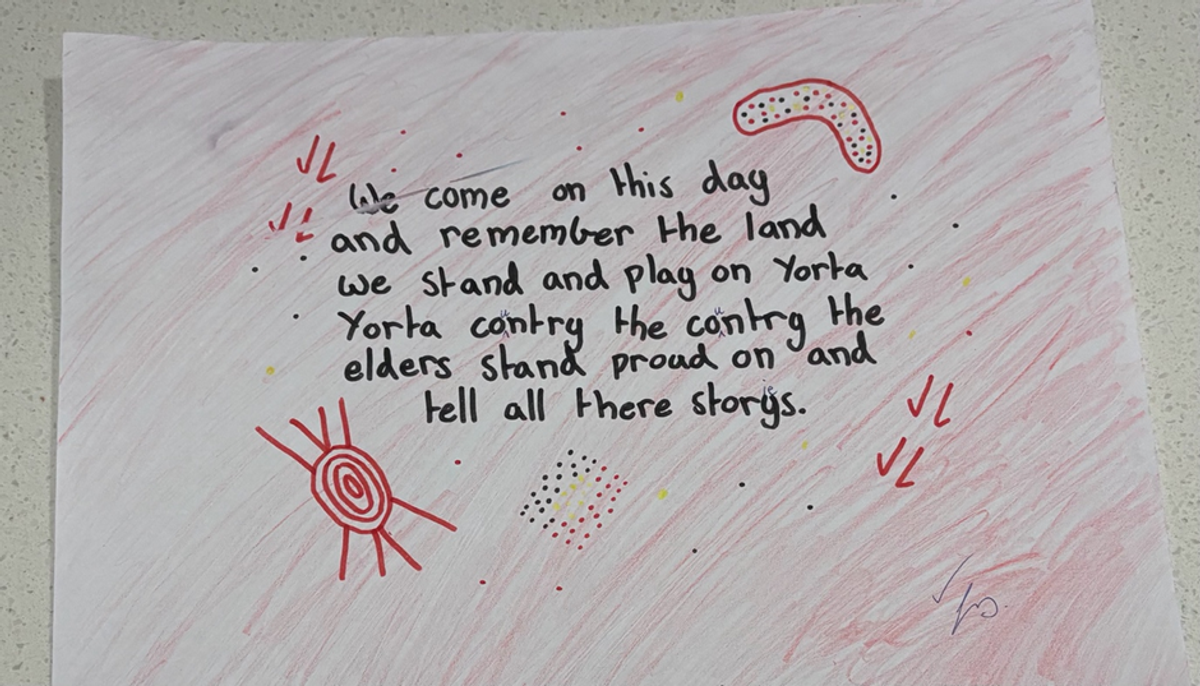 We come on this day
and remember the land
we stand and play on Yorta
Yorta contry the contry the
elders stand proud on and
tell all there storys.